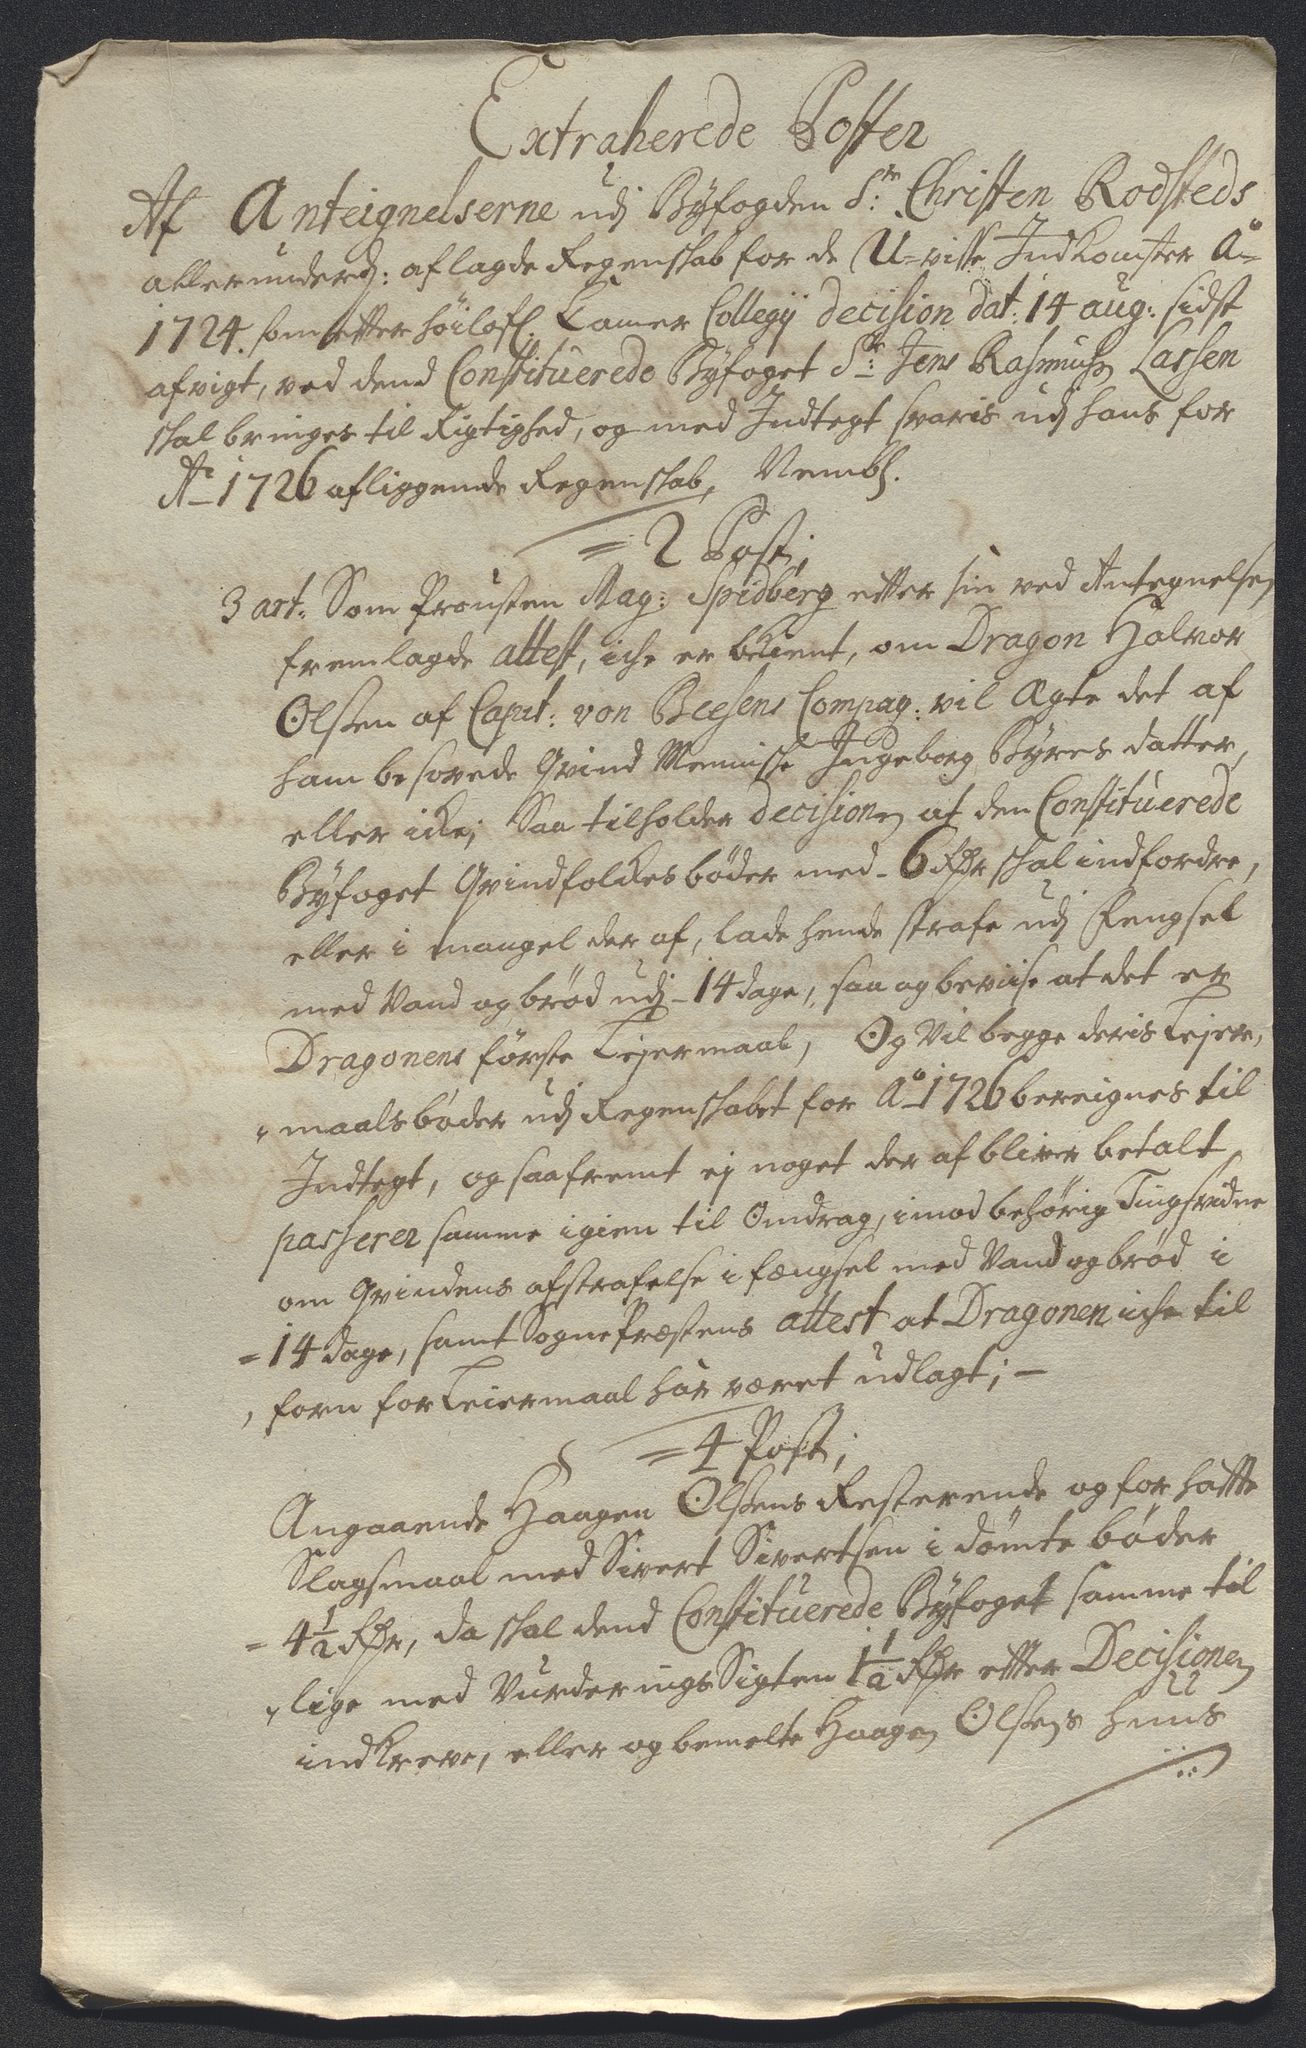 Extraherede Poster
Af Anteignelserne udj Byfogden Sr: Christen Rodsteds
allerunderd: aflagde Regenskab for de U=visse Indkomster Ao=
1724. som etter höilofl. Camer Collegij decision dat: 14 aug: sidst
afvigt, ved dend Constituerede Byfoget Sr: Jens Rasmusn Lassen
skal bringes til Rigtighed, og med Indtegt svaris udj hans for
Ao 1726 afliggende Regenskab, Nembl.
= 2 Post;
3 art: Som Prousten Mag: Spidberg etter sin ved Antegnelsen
fremlagde attest, iche er bekient, om Dragon Halvor
Olsen af Capit: von Beesens Compag: vil Ægte det af
ham besovede Qvind Menniske Ingeborg Byres datter,
eller icke; Saa tilholder decisionen at den Constituerede
Byfoget Qvindfolkes bøder med - 6 Rdr skal indfordre,
eller i mangel der af, lade hende strafe udj Fengsel
med Vand og brød udj - 14 dage, saa og beviise at det er
Dragonens første Lejermaal, Og Vil begge deris Lejer,
maals bøder udj Regenskabet for Ao 1726 bereignes til
Indtegt, og saafremt ej noget der af bliver betalt
passerer samme igien til Omdrag, imod behørig Tingsvidne
om Qvindens afstrafelse i fængsel med Vand og brød i
= 14 dage, samt Sogne Præstens attest at Dragonen iche til
, forn for Leiermaal har været udlagt; -
= 4 Post;
Angaaende Haagen Olsens Resterende og for hafte
Slagsmaal med Sivert Sivertsen i dömte bøder
= 4 1/2 Rdr, da skal dend Constituerede Byfoget samme til
lige med Vurderings Sigten 1 1/2 Rdr etter Decisionen
indkreve, eller og bemelte Haagen Olsens huus